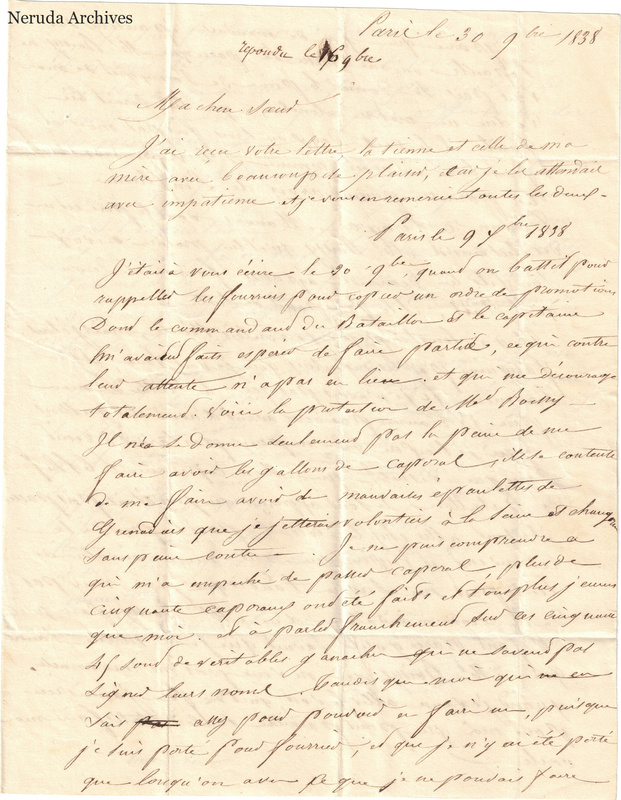 Neruda Archives
Paris le 30 9bre 1838
repondu le 16 9bre
Ma chere soeur
J'ai reçu votre lettre la tienne et celle de ma
mère avec beaucoup de plaisir, car je les attendais
avec impatience et je vous en remercie toutes les deux -
Paris le 9 Xbre 1838
J'étais à vous écrire le 30 9bre, quand on battit pour
rappeller les fourriers pour copier un ordre de promotions
Dont le commandand du Bataillon et le capitaine
m'avaient faits espérer de faire partie, ce qui contre
leur attente n'a pas eu lieu. et qui me décourage
totalement. Voici la protection de Mr
Il se donne seulement pas la peine de me
faire avoir les gallons de caporal, il se contente
de me faire avoir de mauvaises épaulettes de
Grenadiers que je jetterais volontiers à la Seine et changer
sans peine contre —. Je ne puis comprendre a
qui m'a empeché de passer caporal, plus de
cinquante caporaux ond été faits et tous plus jeunes
que moi. et à parler franchement sur ces cinquante
45 sond de véritables ganaches qui ne savend pas
signer leurs noms. Tandis que moi qui en
sais assez pour pouvoir en faire un, puisque
je suis porté pour fourrier, et que je n'y ai été porté
que lorsqu'on a vu ce que je pouvais faire